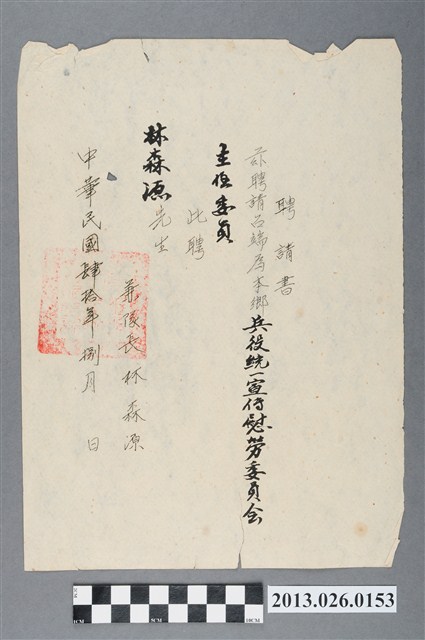 聘請書
茲聘請台端為本鄉兵役統一宣傳慰勞委員会
主任委員
此聘
林森源先生
兼隊長林森源
中華民國肆拾年捌月　日
2013.026.0153